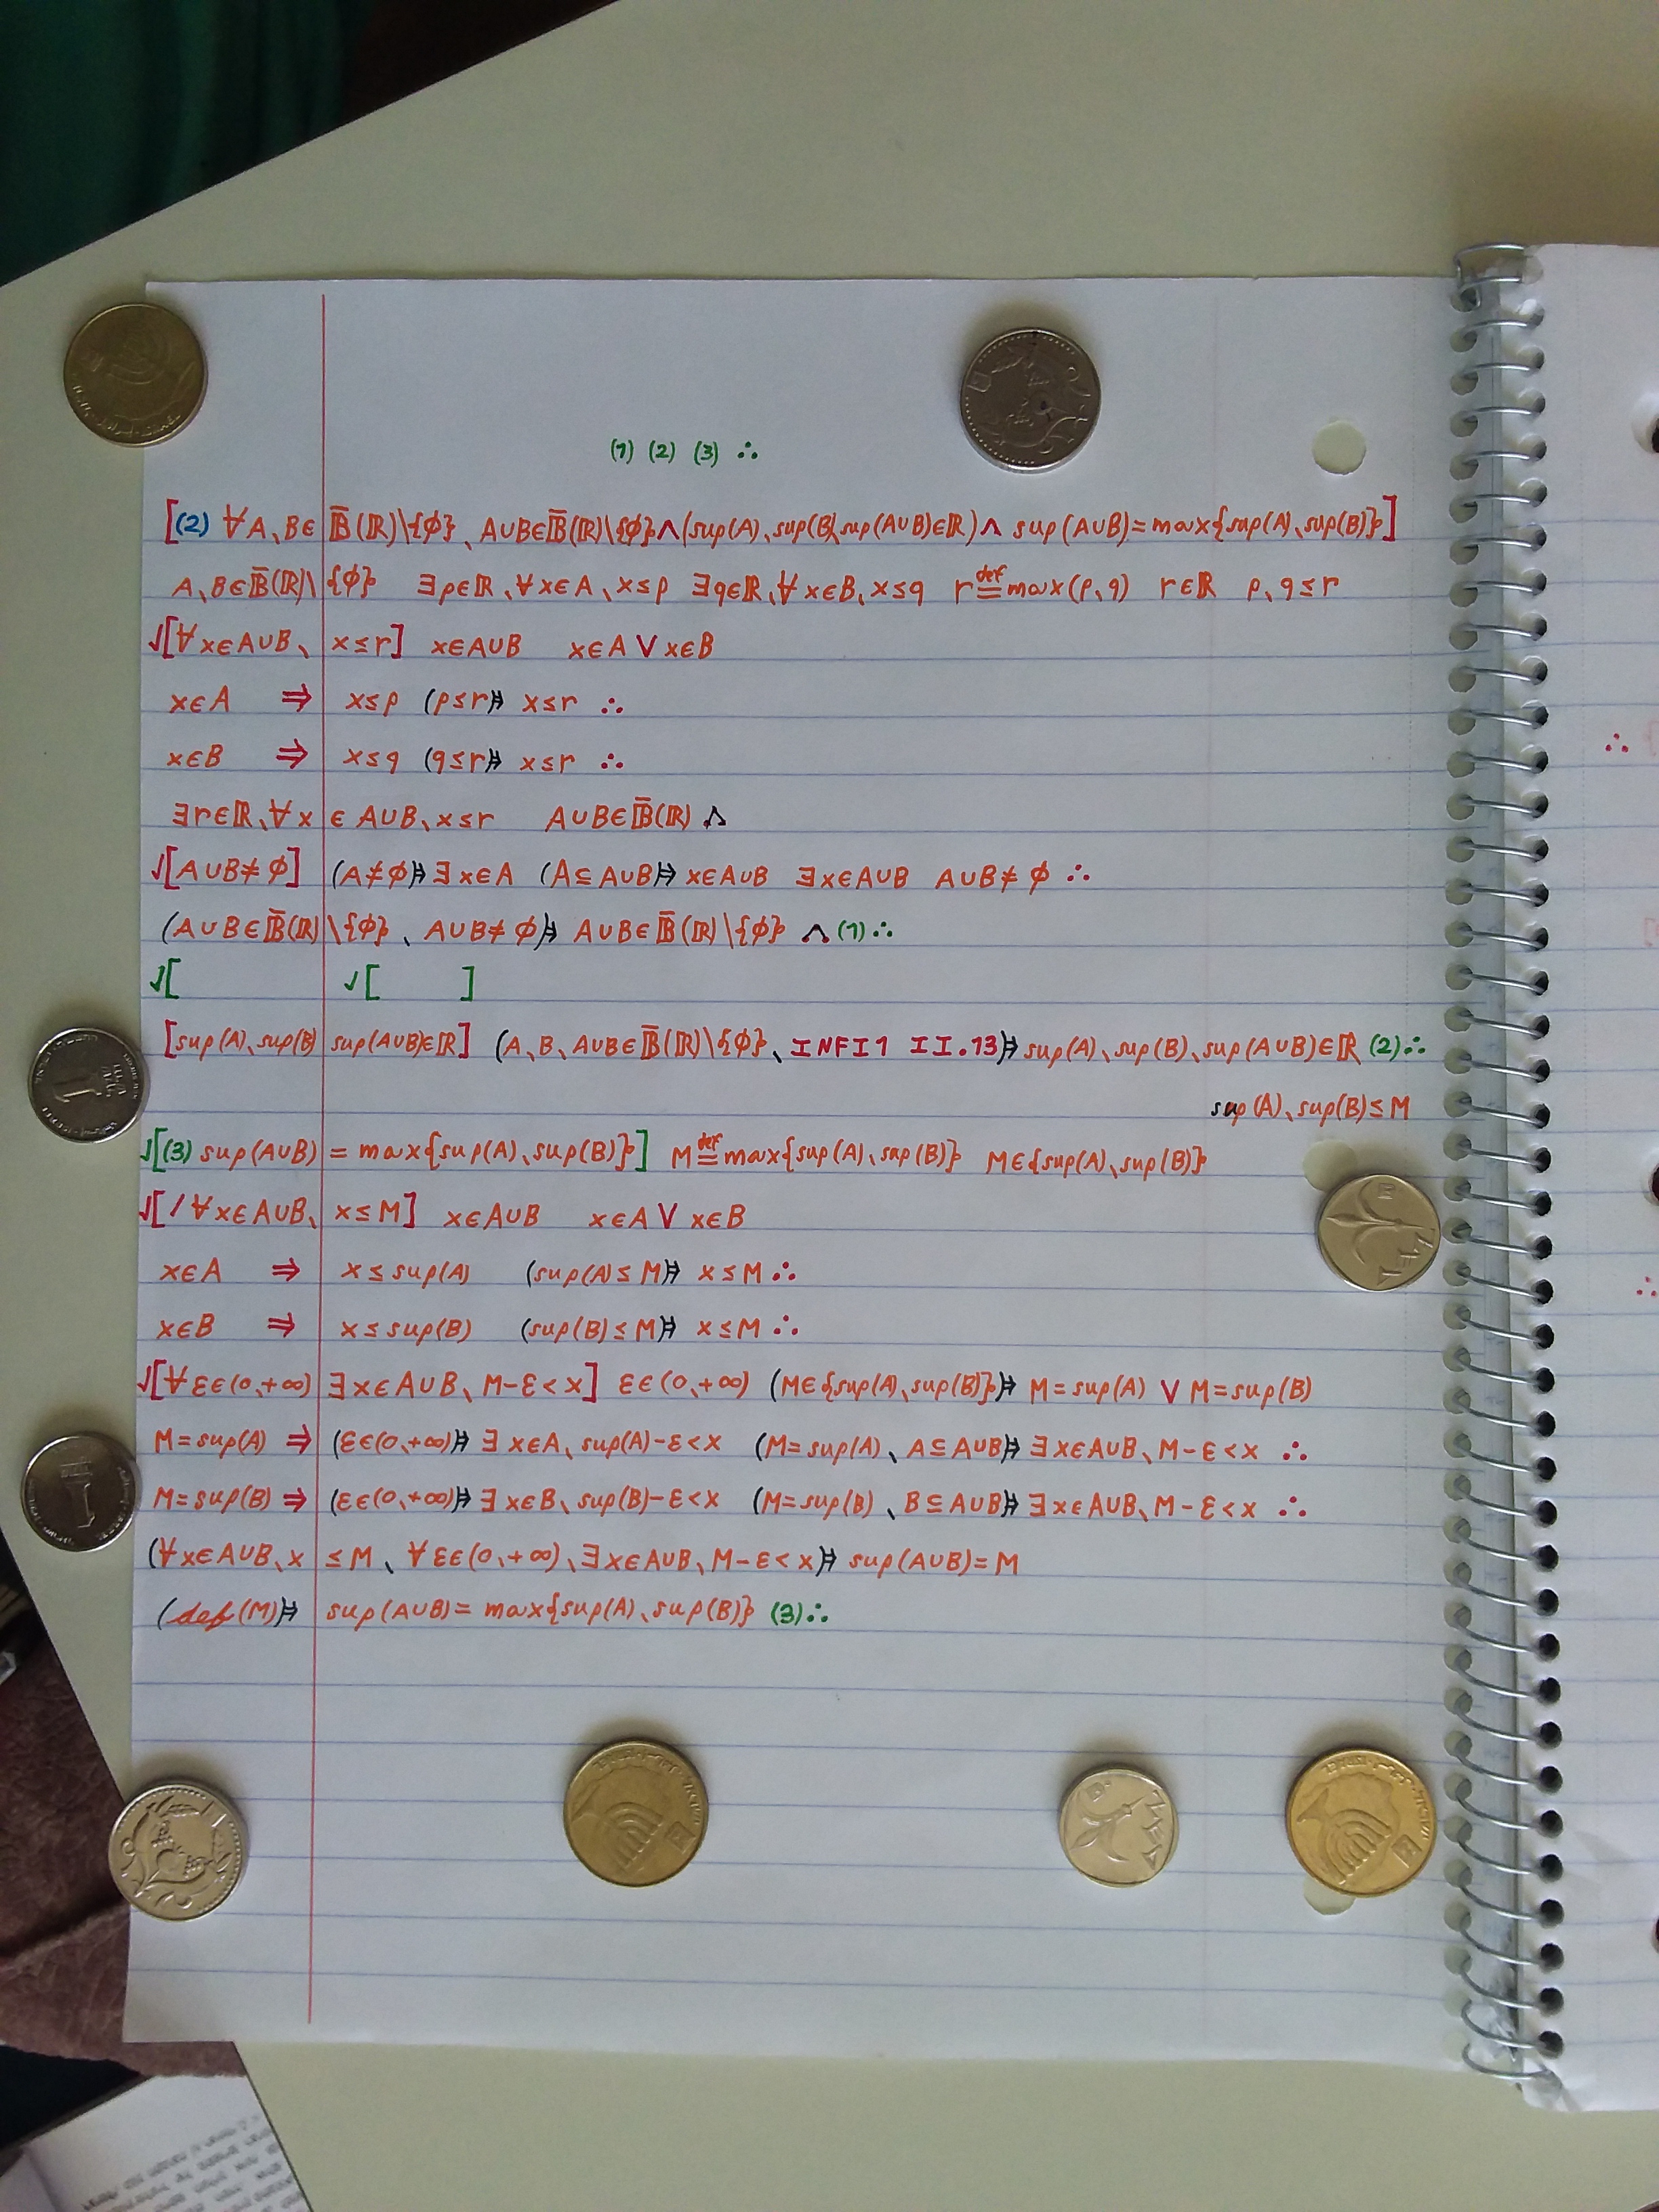 (1) (2) (3) ∴
[(2) ∀A、B∈𝔹̅(ℝ)\{∅}、A∪B∈𝔹̅(ℝ)\{∅}∧(sup(A)、sup(B)、sup(A∪B)∈ℝ)∧ sup(A∪B)=max{sup(A)、sup(B)}]
A、B∈𝔹̅(ℝ)\{∅} ∃p∈ℝ、∀x∈A、x≤p ∃q∈ℝ、∀x∈B、x≤q r ≝ max(p,q) r∈ℝ p,q≤r
√[∀x∈A∪B、x≤r] x∈A∪B x∈A ∨ x∈B
x∈A ⇒ x≤p (p≤r)⇒ x≤r ∴
x∈B ⇒ x≤q (q≤r)⇒ x≤r ∴
∃r∈ℝ、∀x∈A∪B、x≤r A∪B∈𝔹̅(ℝ) ∴
√[A∪B≠∅] (A≠∅)⇒ ∃x∈A (A⊆A∪B)⇒ x∈A∪B ∃x∈A∪B A∪B≠∅ ∴
(A∪B∈𝔹̅(ℝ)\{∅}、A∪B≠∅)⇒ A∪B∈𝔹̅(ℝ)\{∅} ∴ (1)∴
√[ √[ ]
[sup(A)、sup(B) sup(A∪B)∈ℝ] (A、B、A∪B∈𝔹̅(ℝ)\{∅}、INFI1 II.13)⇒ sup(A)、sup(B)、sup(A∪B)∈ℝ (2)∴
sup(A)、sup(B)≤M
√[(3) sup(A∪B) = max{sup(A)、sup(B)}] M ≝ max{sup(A)、sup(B)} M∈{sup(A)、sup(B)}
√[/∀x∈A∪B、x≤M] x∈A∪B x∈A ∨ x∈B
x∈A ⇒ x≤sup(A) (sup(A)≤M)⇒ x≤M ∴
x∈B ⇒ x≤sup(B) (sup(B)≤M)⇒ x≤M ∴
√[∀ε∈(0、+∞) ∃x∈A∪B、M-ε<x] ε∈(0、+∞) (M∈{sup(A)、sup(B)})⇒ M=sup(A) ∨ M=sup(B)
M=sup(A) ⇒ (ε∈(0、+∞))⇒ ∃x∈A、sup(A)-ε<x (M=sup(A)、A⊆A∪B)⇒ ∃x∈A∪B、M-ε<x ∴
M=sup(B) ⇒ (ε∈(0、+∞))⇒ ∃x∈B、sup(B)-ε<x (M=sup(B)、B⊆A∪B)⇒ ∃x∈A∪B、M-ε<x ∴
(∀x∈A∪B、x≤M、∀ε∈(0、+∞)、∃x∈A∪B、M-ε<x)⇒ sup(A∪B)=M
(def(M))⇒ sup(A∪B)= max{sup(A)、sup(B)} (3)∴